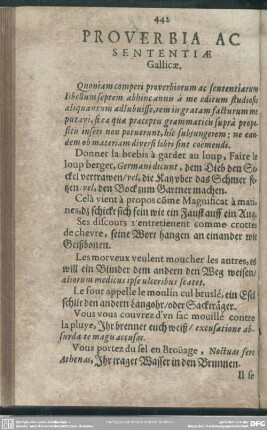 442
PROVERBIA AC
SENTENTIÆ
Gallicæ.
Quoniam comperi proverbiorum ac sententiarum
libellum septem abhinc annis à me editum studiosis
aliquantum adlubuisse, rem iis gratam facturum me
putavi, si ea quæ præceptis grammaticis suprà propo-
sitis inseri non potuerunt, hic subjungerem; ne ean-
dem ob materiam diversi libri sint coëmendi.
Donner la brebis à garder au loup, Faire le
loup berger, Germani dicunt, dem Dieb den Se-
ckel vertrawen/ vel, die Katz vber das Schmer se-
tzen, vel, den Bock zum Gartner machen.
Celà vient à propos cõme Magnificat à mati-
nes, dz schickt sich fein wie ein Faust auff ein Aug.
Ses discours s'entretienent comme crottes
de chevre, seine Wort hangen an einander wie
Geißbonen.
Les morveux veulent moucher les autres, es
will ein Blinder dem andern den Weg weisen/
aliorum medicus ipse ulceribus scatet.
Le four appelle le moulin cul bruslé, ein Esel
schilt den andern Langohr/ oder Sackträger.
Vous vous couvrez d'vn sac mouillé contre
la pluye, Ihr brennet euch weiß/ excusatione ab-
surda te magis accusas.
Vous portez du sel en Broüage, Noctuas fers
Athenas, Ihr traget Wasser in den Brunnen.
Il se